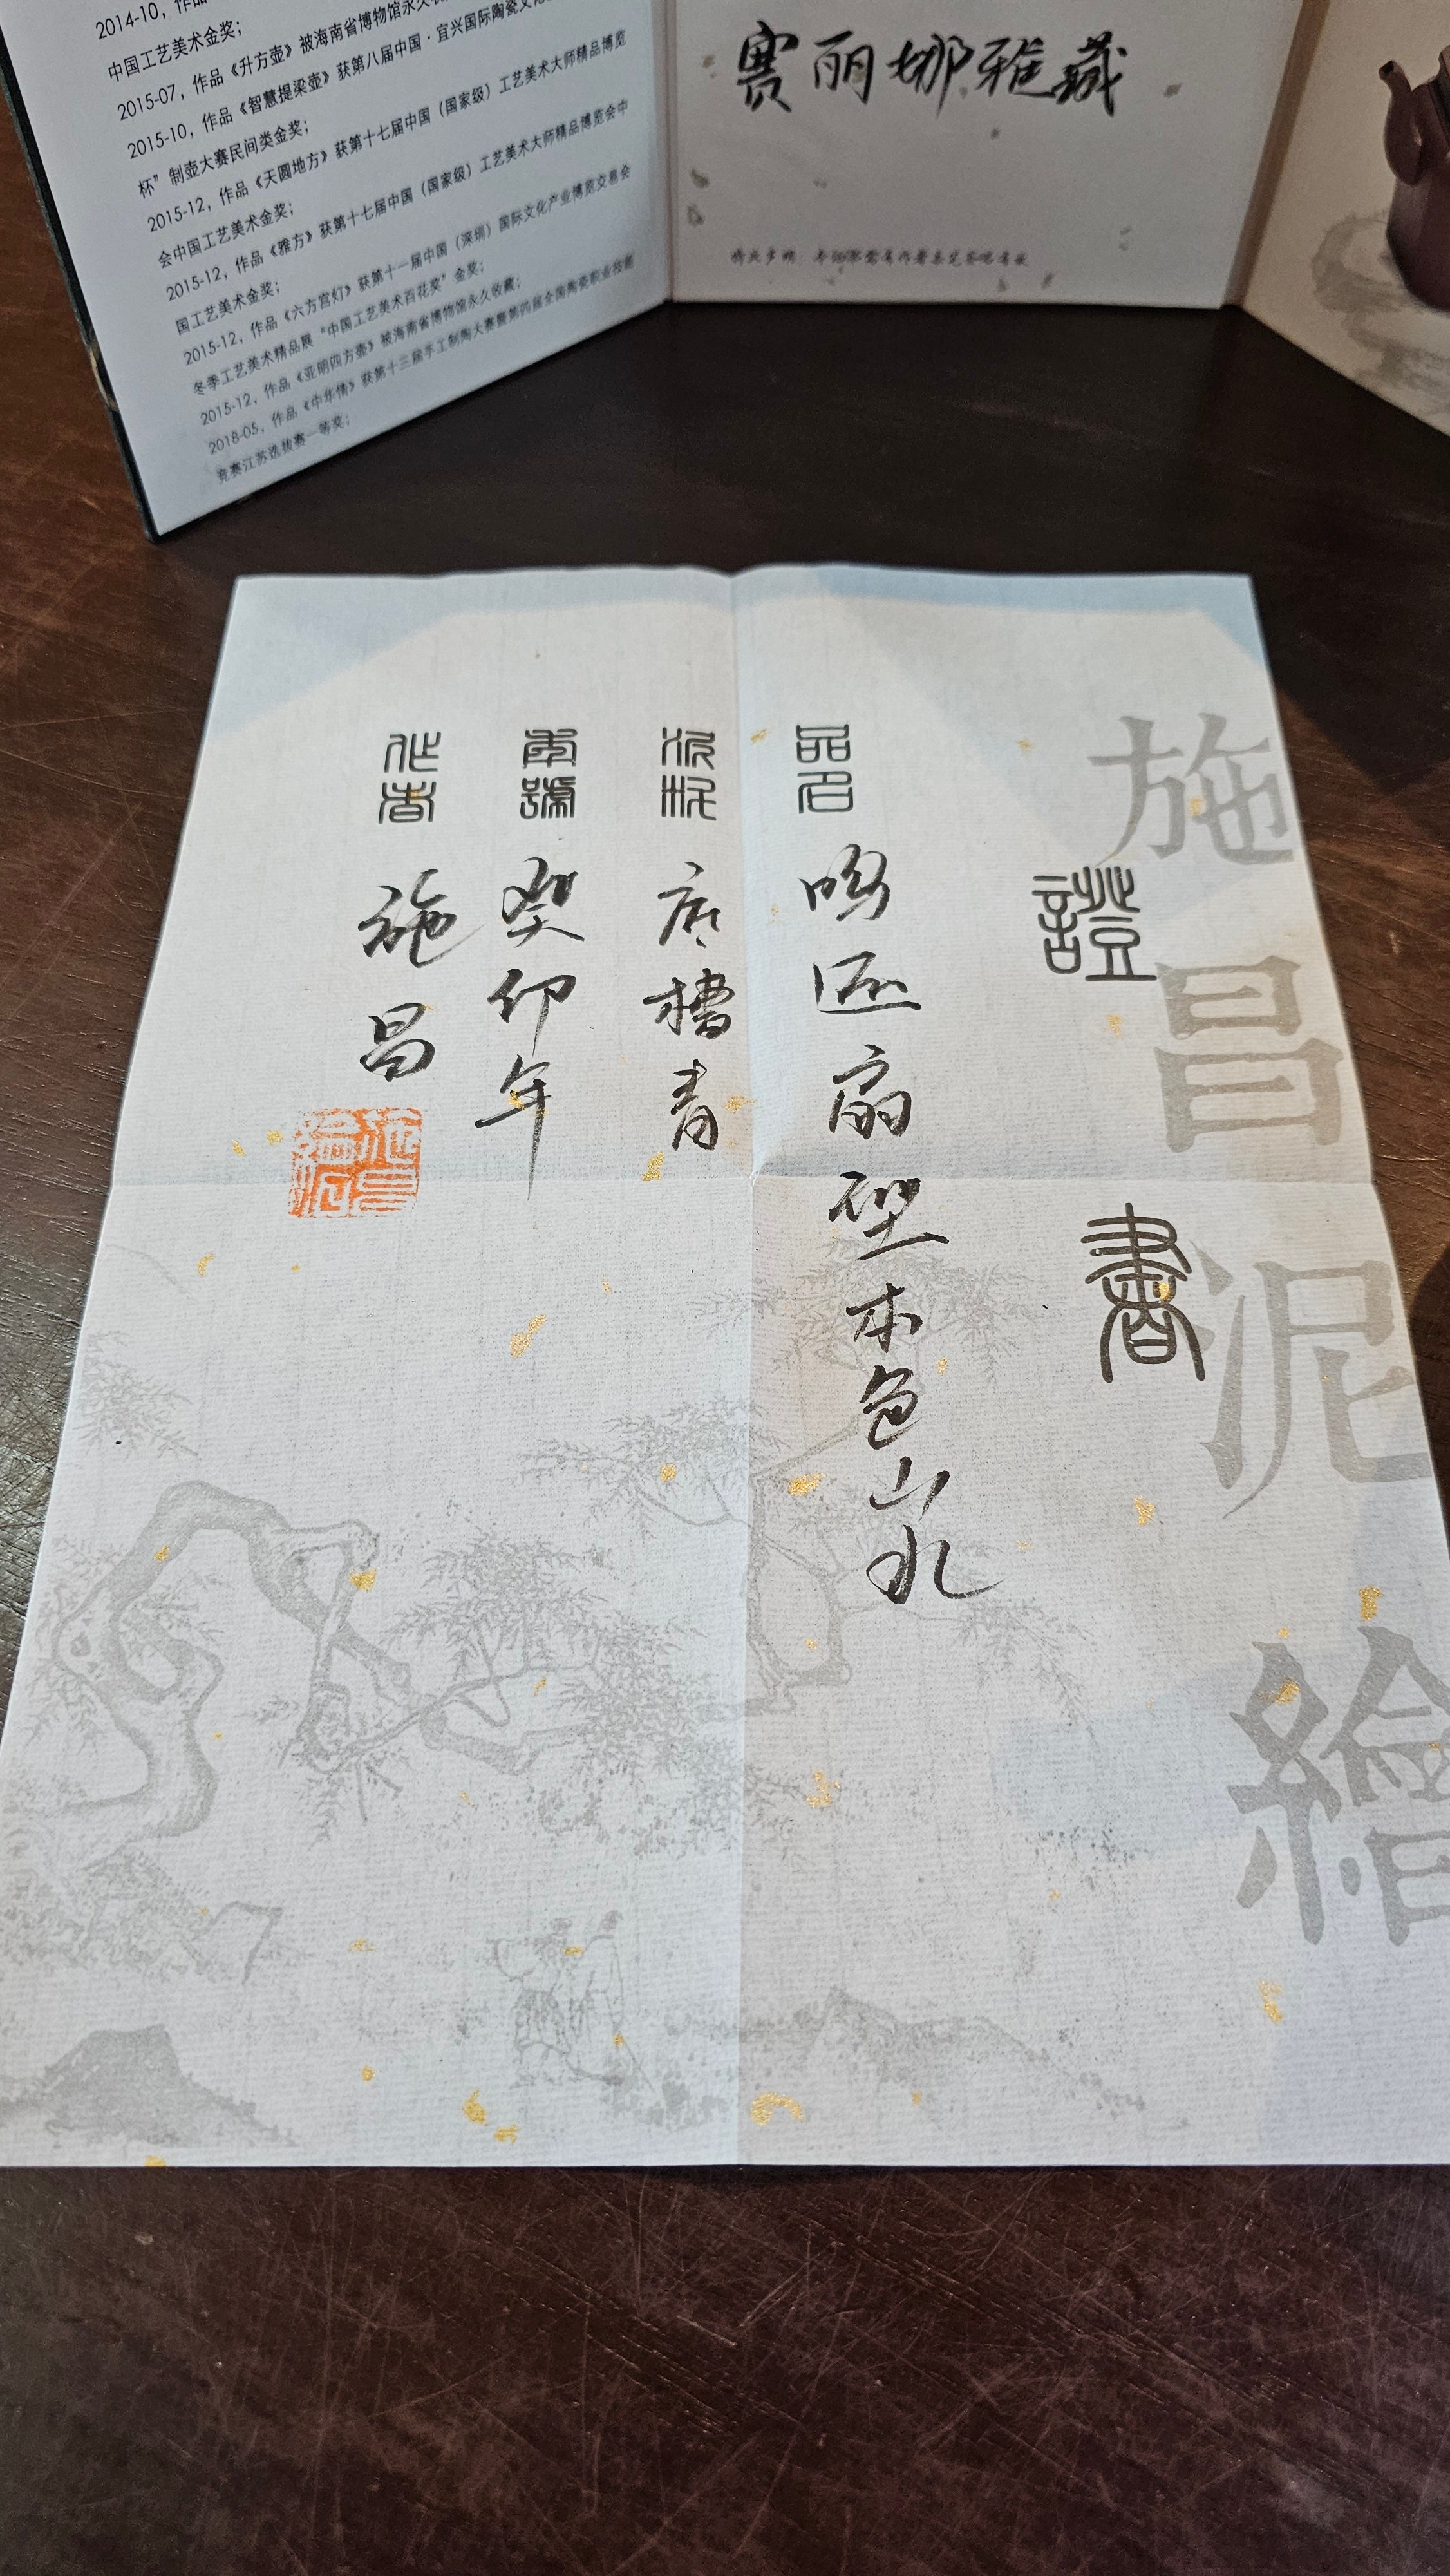 2014-10，作品
中国工艺美术金奖；
2015-07，作品《升方壶》被海南省博物馆永久
2015-10，作品《智慧提梁壶》获第八届中国·宜兴国际陶瓷文化
杯”制壶大赛民间类金奖；
2015-12，作品《天圆地方》获第十七届中国（国家级）工艺美术大师精品博览
会中国工艺美术金奖；
2015-12，作品《雅方》获第十七届中国（国家级）工艺美术大师精品博览会中
国工艺美术金奖；
2015-12，作品《六方宫灯》获第十一届中国（深圳）国际文化产业博览交易会
冬季工艺美术精品展“中国工艺美术百花奖”金奖；
2015-12，作品《亚明四方壶》被海南省博物馆永久收藏；
2018-05，作品《中华情》获第十三届手工制陶大赛暨第四届全国陶瓷职业技能
竞赛江苏选拔赛一等奖；
赛丽娜雅藏
施昌泥繪
證書
品名 扇型本色山水
泥料 底槽青
癸卯年
作者 施昌